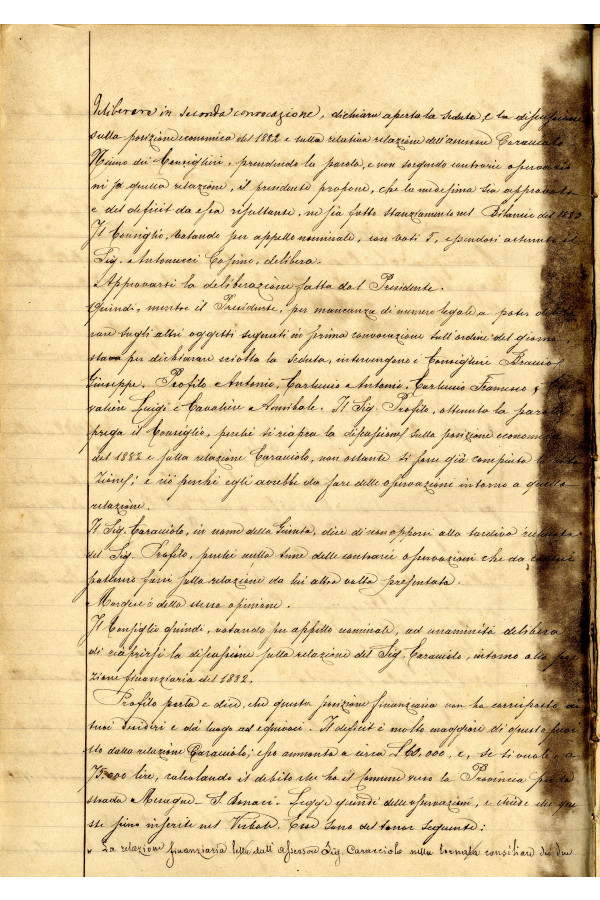 deliberare in seconda convocazione, dichiara aperta la seduta, e la discussione
sulla posizione economica del 1882 e sulla relativa relazione dell'assessore Caracciolo
Niuno dei Consiglieri, prendendo la parola, e non sorgendo contrarie osservazio
ni su quella relazione, il presidente propone, che la medesima sia approvata
e del deficit da essa risultante, ne sia fatto stanziamento nel Bilancio del 1883
Il Consiglio, votando per appello nominale, con voti 7, essendosi astenuto il
Sig. Antonucci Cosimo, delibera.
Approvarsi la deliberazione fatta dal Presidente.
Quindi, mentre il Presidente, per mancanza di numero legale a poter delibe
rare sugli altri oggetti segnati in prima convocazione sull'ordine del giorno
stava per dichiarare sciolta la seduta, intervengono i Consiglieri
Giuseppe, Profilo Antonio, Carluccio Antonio, Carluccio Francesco, Ca
valiere Luigi e Cavaliere Annibale. Il Sig. Profilo, ottenuta la parola
prega il Consiglio, perché si riapra la discussione sulla posizione economica
del 1882 e sulla relazione Caracciolo, non ostante si fosse già compiuta la vota
zione; e ciò perché egli avrebbe da fare delle osservazione intorno a quella
relazione.
Il Sig. Caracciolo, in nome della Giunta, dice di non opporsi alla tardiva richiesta
del Sig. Profilo, perché nulla teme delle contrarie osservazioni che da
potessero farsi sulla relazione da lui altra volta presentata.
Margese è della stessa opinione.
Il Consiglio quindi, votando per appello nominale, ad unanimità delibera
di riaprirsi la discussione sulla relazione del Sig. Caracciolo, intorno alla po
zione finanziaria del 1882.
Profilo parla e dice, che questa posizione finanziaria non ha corrisposto ai
suoi desideri e dà luogo ad equivoci. Il deficit è molto maggiore di questo
dalla relazione Caracciolo; esso ammonta a circa L. 60,000, e, se si vuole, a
75,000 lire, calcolando il debito che ha il Comune verso la Provincia per la
strada Mesagne - S. Donaci. Legge quindi delle osservazioni, e chiede che que
ste sieno inserite nel Verbale. Esse sono del tenor seguente:
" La relazione finanziaria letta dall'assessore Sig. Caracciolo nella tornata consiliare dei due